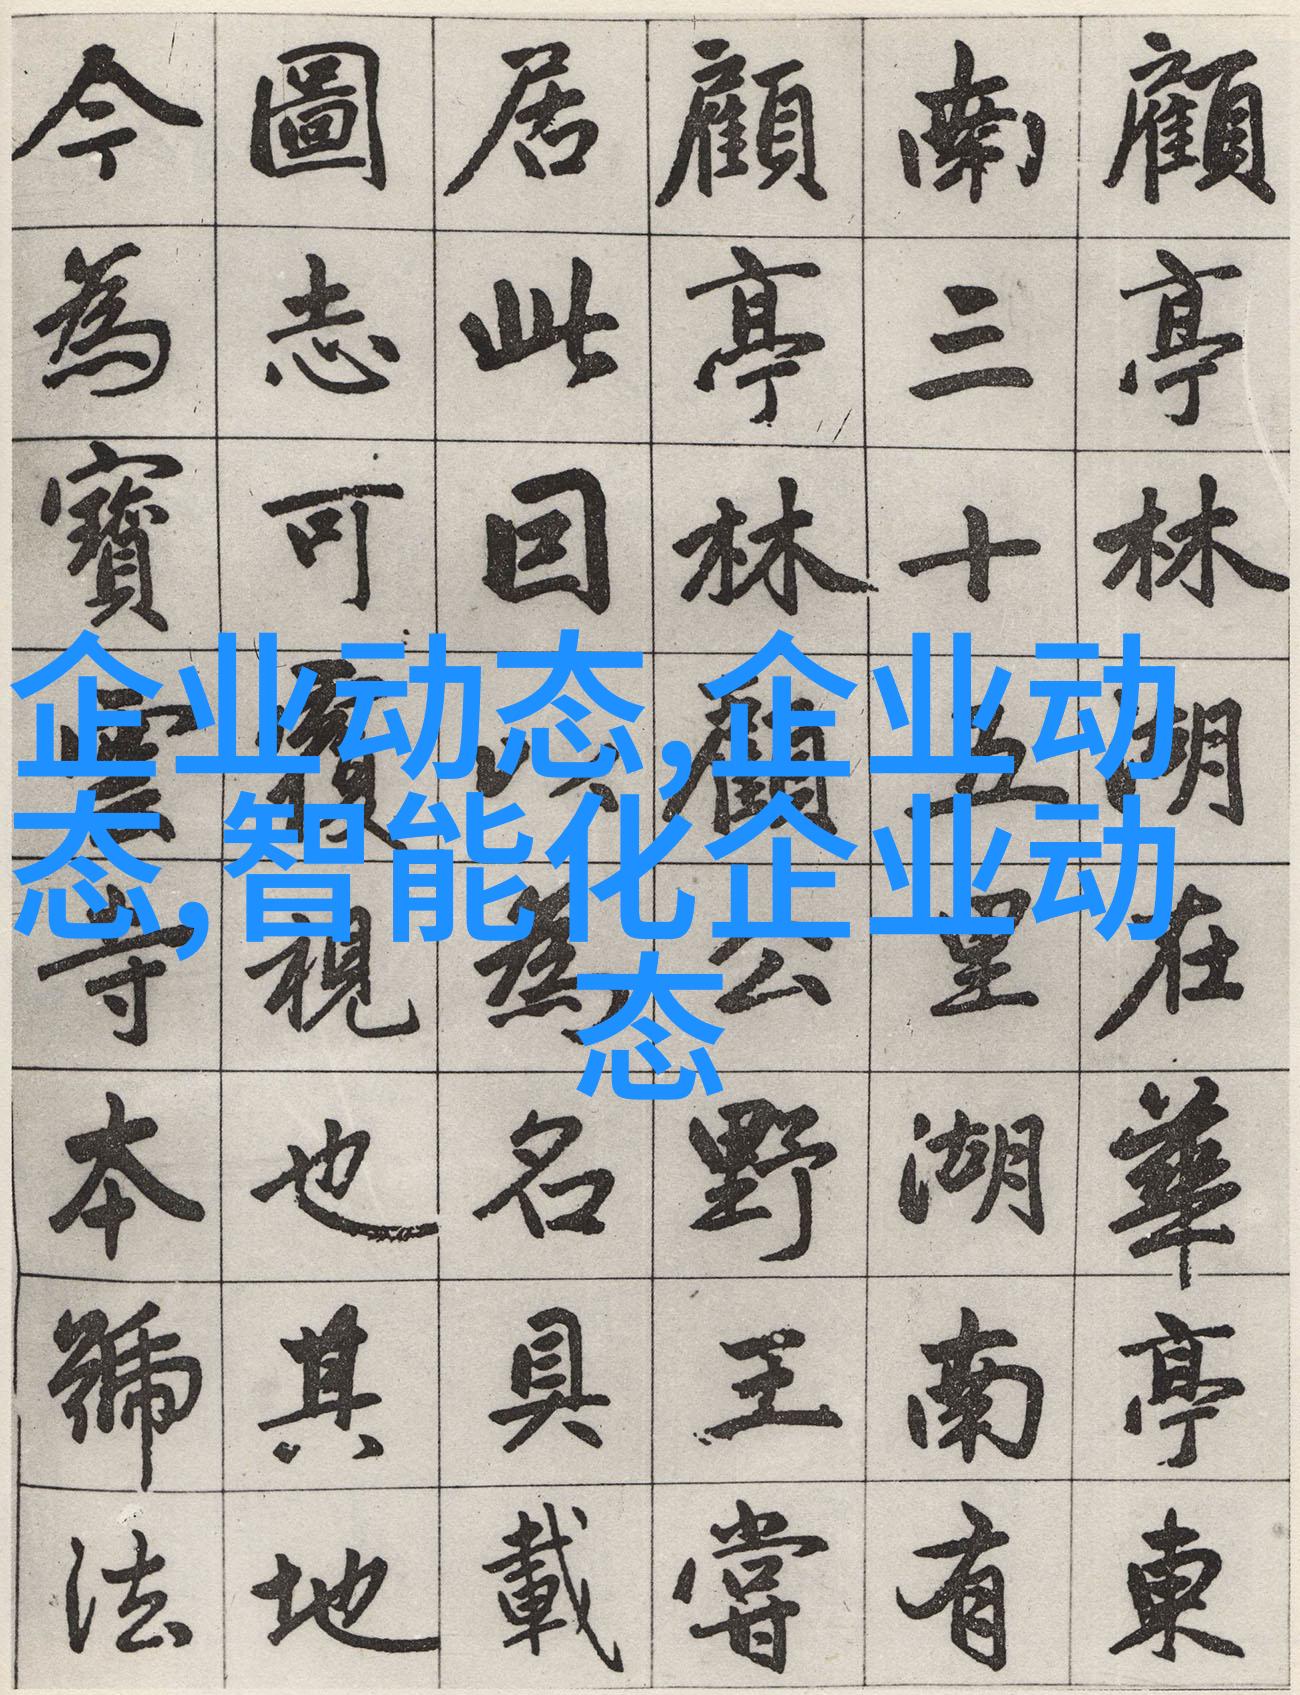 顧亭林湖在華亭東
南三十五里湖南有
顧亭林顧公野王嘗
居此囙以為名具載
圖志可覆視也其地
今為寶雲寺本號法
企业动态,企业动
态,智能化企业动
态